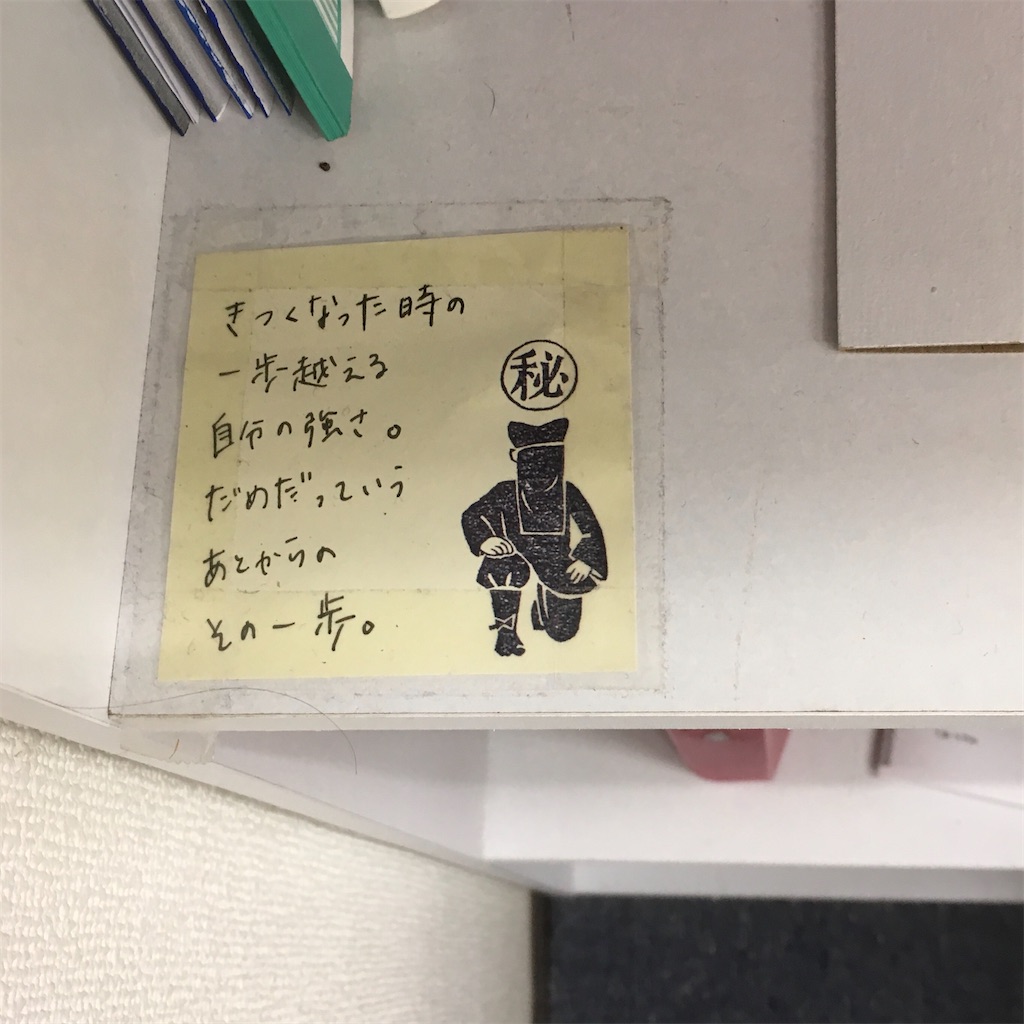 きつくなった時の
一歩越える
自分の強さ。
だめだっていう
あとからの
その一歩。
㊙